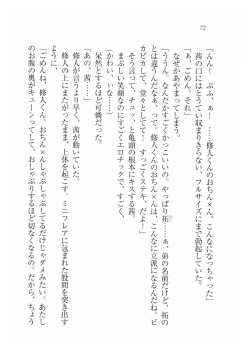 72
「んん！　ぷふ、ぁ――！　修人くんのおちん×ん、こんなになっちゃった」
茜の口にはとうてい収まりきらない、フルサイズにまで勃起していた。
「ぁ、ごめん。それ」
なぜかあやまってしまう。
「ううん、なんだかすごくかっこいいの。やっぱり拓――ぁ、弟の名前だけど、拓の
とは違うんだなぁ、って。修人くんのおちん×んは、こんなに立派になるんだね。ピ
カピカして、堂々としてて！　すっごくステキ、だよ！」
そう言って、チュッ、と亀頭の根本にキスする茜。
まぶしい笑顔なのにすごくエロチックで、すごく、
「かわいい、な」
呆然とするほど可憐だった。
「あの。茜……」
修人が言うより早く、茜が動いていた。
修人の上にまたがったまま、上体を起こす。ミニフレアに包まれた股間を突き出す
ように、
「ごめんね、修人くん。おちん×んしゃぶしゃぶしてるだけじゃダメみたい。あたし
のお腹の奥がキューンってして、おしゃぶりするほど切なくなるの。だから、ちょう